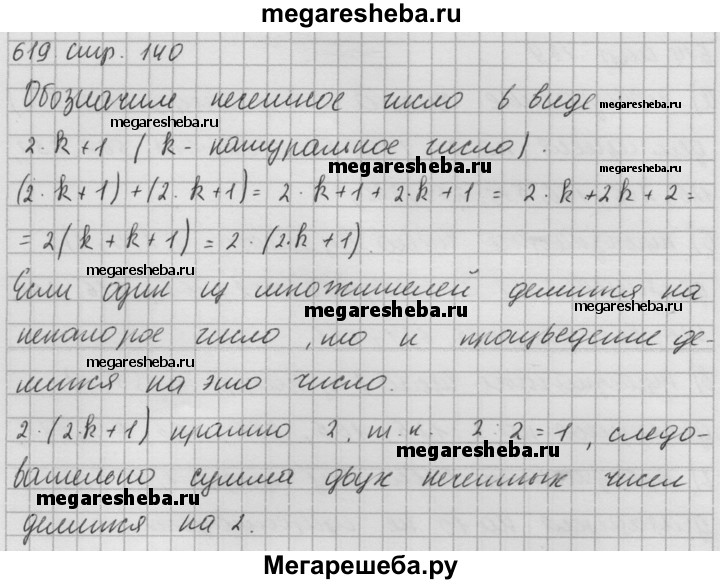 megaresheba.ru
619 стр. 140
Обозначим нечетное число в виде
megaresheba.ru
megaresheba.ru
2·k+1 (k - натуральное число).
megaresheba.ru
megaresheba.ru
(2·k+1)+(2·k+1)= 2·k+1+2·k+1 = 2·k+2k+2=
=2(k+k+1)=2·(2·k+1).
megaresheba.ru
Если один из множителей делится на
megaresheba.ru
некоторое число, то и произведение де-
megaresheba.ru
лится на это число.
2·(2·k+1) кратно 2, т.к. 2:2=1, следо-
megaresheba.ru
вательно сумма двух нечетных чисел
megaresheba.ru
делится на 2.
Мегарешеба.ру